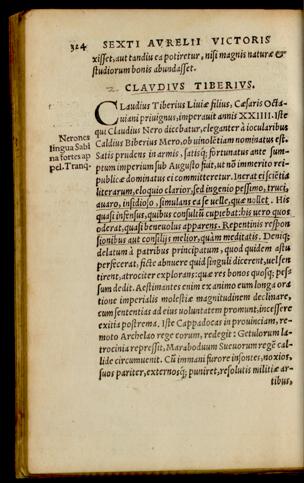 324 SEXTI AVRELII VICTORIS
xisset, aut tandiu ea potiretur, nisi magis naturæ &
studiorum bonis abundasset.
CLAVDIVS TIBERIVS.
Claudius Tiberius Liuiæ filius, Cæsaris Octa-
uiani priuignus, imperauit annis XXIIII. Iste
qui Claudius Nero dicebatur, eleganter à iocularibus
Caldius Biberius Mero, ob uinolētiam nominatus est.
Satis prudens in armis, satisq; fortunatus ante sum-
ptum imperium sub Augusto fuit, ut nō immerito rei-
publicæ dominatus ei committeretur. Inerat ei sciētia
literarum, eloquio clarior, sed ingenio pessimo, truci,
auaro, insidioso, simulans ea se uelle, quæ nollet. His
quasi infensus, quibus consultū cupiebat: his uero quos
oderat, quasi beneuolus apparens. Repentinis respon
sionibus aut consilijs melior, quàm meditatis. Deniq;
delatum à patribus principatum, quod quidem astu
perfecerat, ficte abnuere quid singuli dicerent, uel sen
tirent, atrociter explorans: quæ res bonos quosq; pes-
sum dedit. Aestimantes enim ex animo eum longa ora
tione imperialis molestiæ magnitudinem declinare,
cum sententias ad eius uoluntatem promunt, incessere
exitia postrema. Iste Cappadocas in prouinciam, re-
moto Archelao rege eorum, redegit: Getulorum la-
trocinia repressit, Maraboduum Sueuorum regē cal-
lide circumuenit. Cū immani furore insontes, noxios,
suos pariter, externosq; puniret, resolutis militiæ ar-
tibus,
Nerones
lingua Sabi
na fortes ap
pel. Tranq.